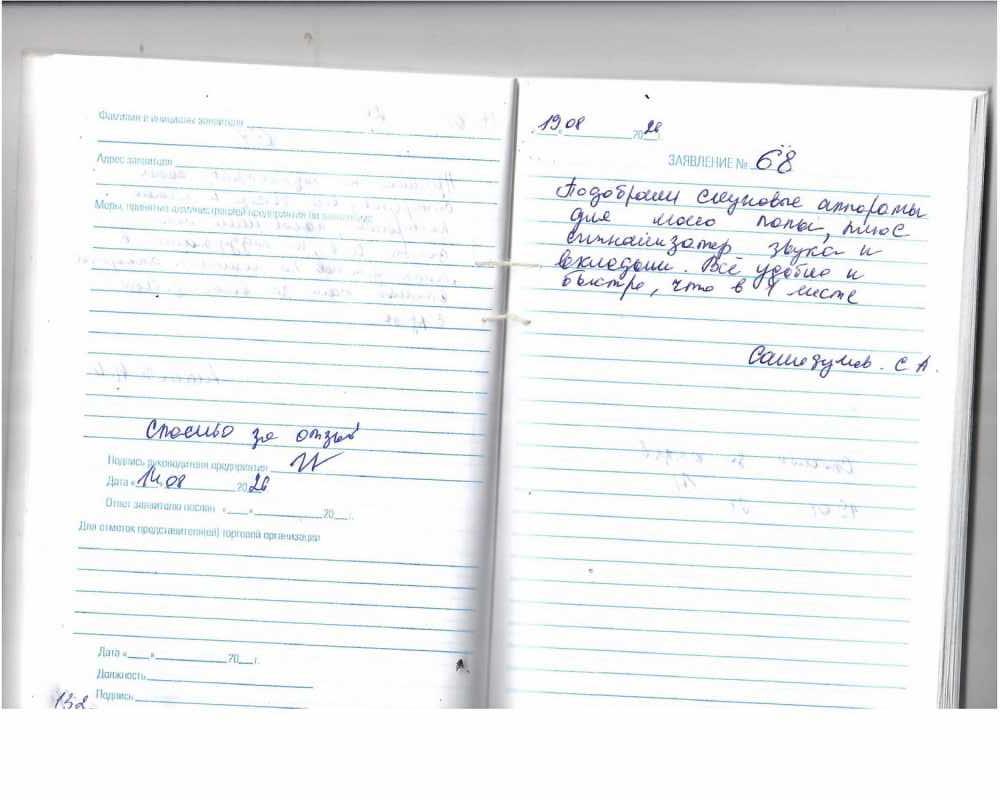 Фамилия и инициалы заявителя
Адрес заявителя
Меры, принятые администрацией предприятия по заявлению:
Спасибо за отзыв
Подпись руководителя предприятия
Дата «14» 08 2026
Ответ заявителю послан «__»__________20__г.
Для отметок представителя(ей) торговой организации
Дата «__»__________20__г.
Должность
Подпись
132
19 08 2026
ЗАЯВЛЕНИЕ № 68
Подобрали слуховые аппараты
для моего папы, плюс
сигнализатор звука и
вкладыши. Всё удобно и
быстро, что в 1 месте
С А.